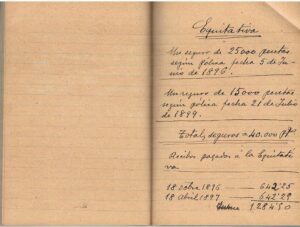 Equitativa
Un seguro de 25000 pesetas
según póliza fecha 5 de Ju-
nio de 1896.
Un seguro de 15000 pesetas
según póliza fecha 21 de Julio
de 1899.
Total, seguros = 40.000 pts
Recibos pagados á la Equitati
va
18 octbre 1896 — 642'25
18 abril 1897 — 642'25
1284'50